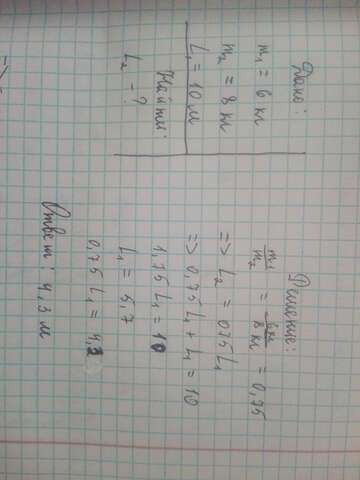 Дано:
m₁ = 6 кг
m₂ = 8 кг
L₁ = 10 м
Найти:
L₂ - ?
Решение:
m₁/m₂ = 6кг/8кг = 0,75
=> L₂ = 0,75 L₁
=> 0,75 L₁ + L₁ = 10
1,75 L₁ = 10
L₁ = 5,7
0,75 L₁ = 4,3
Ответ: 4,3 м